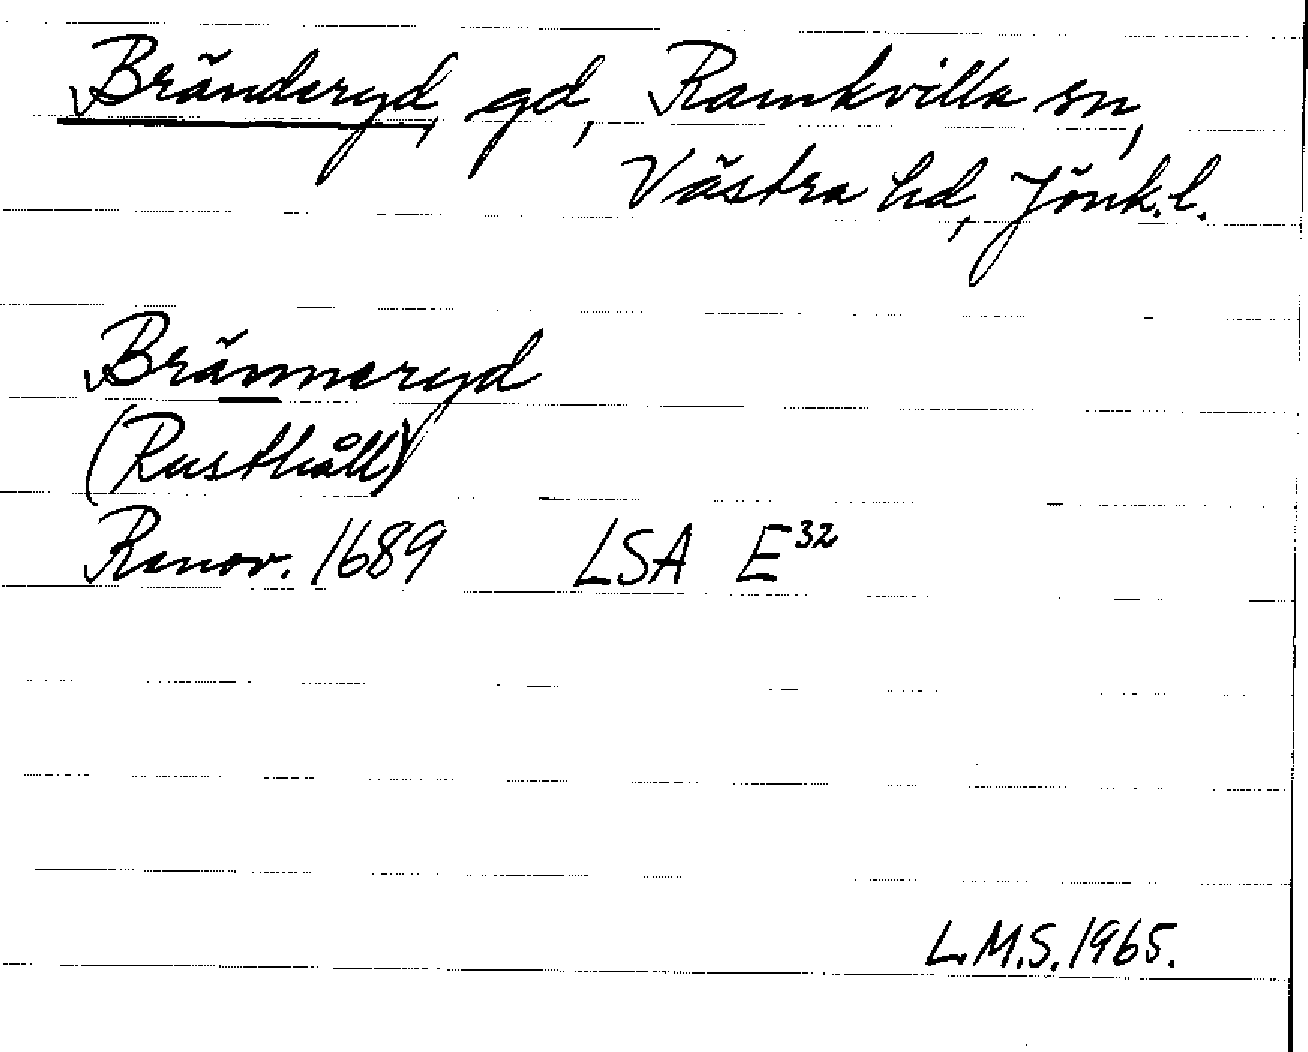 Bränderyd, gd, Ramkvilla sn,
Västra hd, Jönk. l.
Bränneryd
(Rusthåll)
Renov. 1689 LSA E³²
L.M.S. 1965.